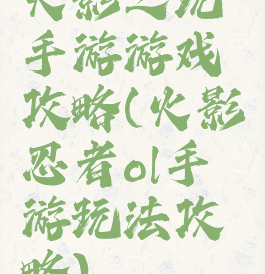 火影之玩
手游游戏
攻略(火影
忍者ol手
游玩法攻
略)